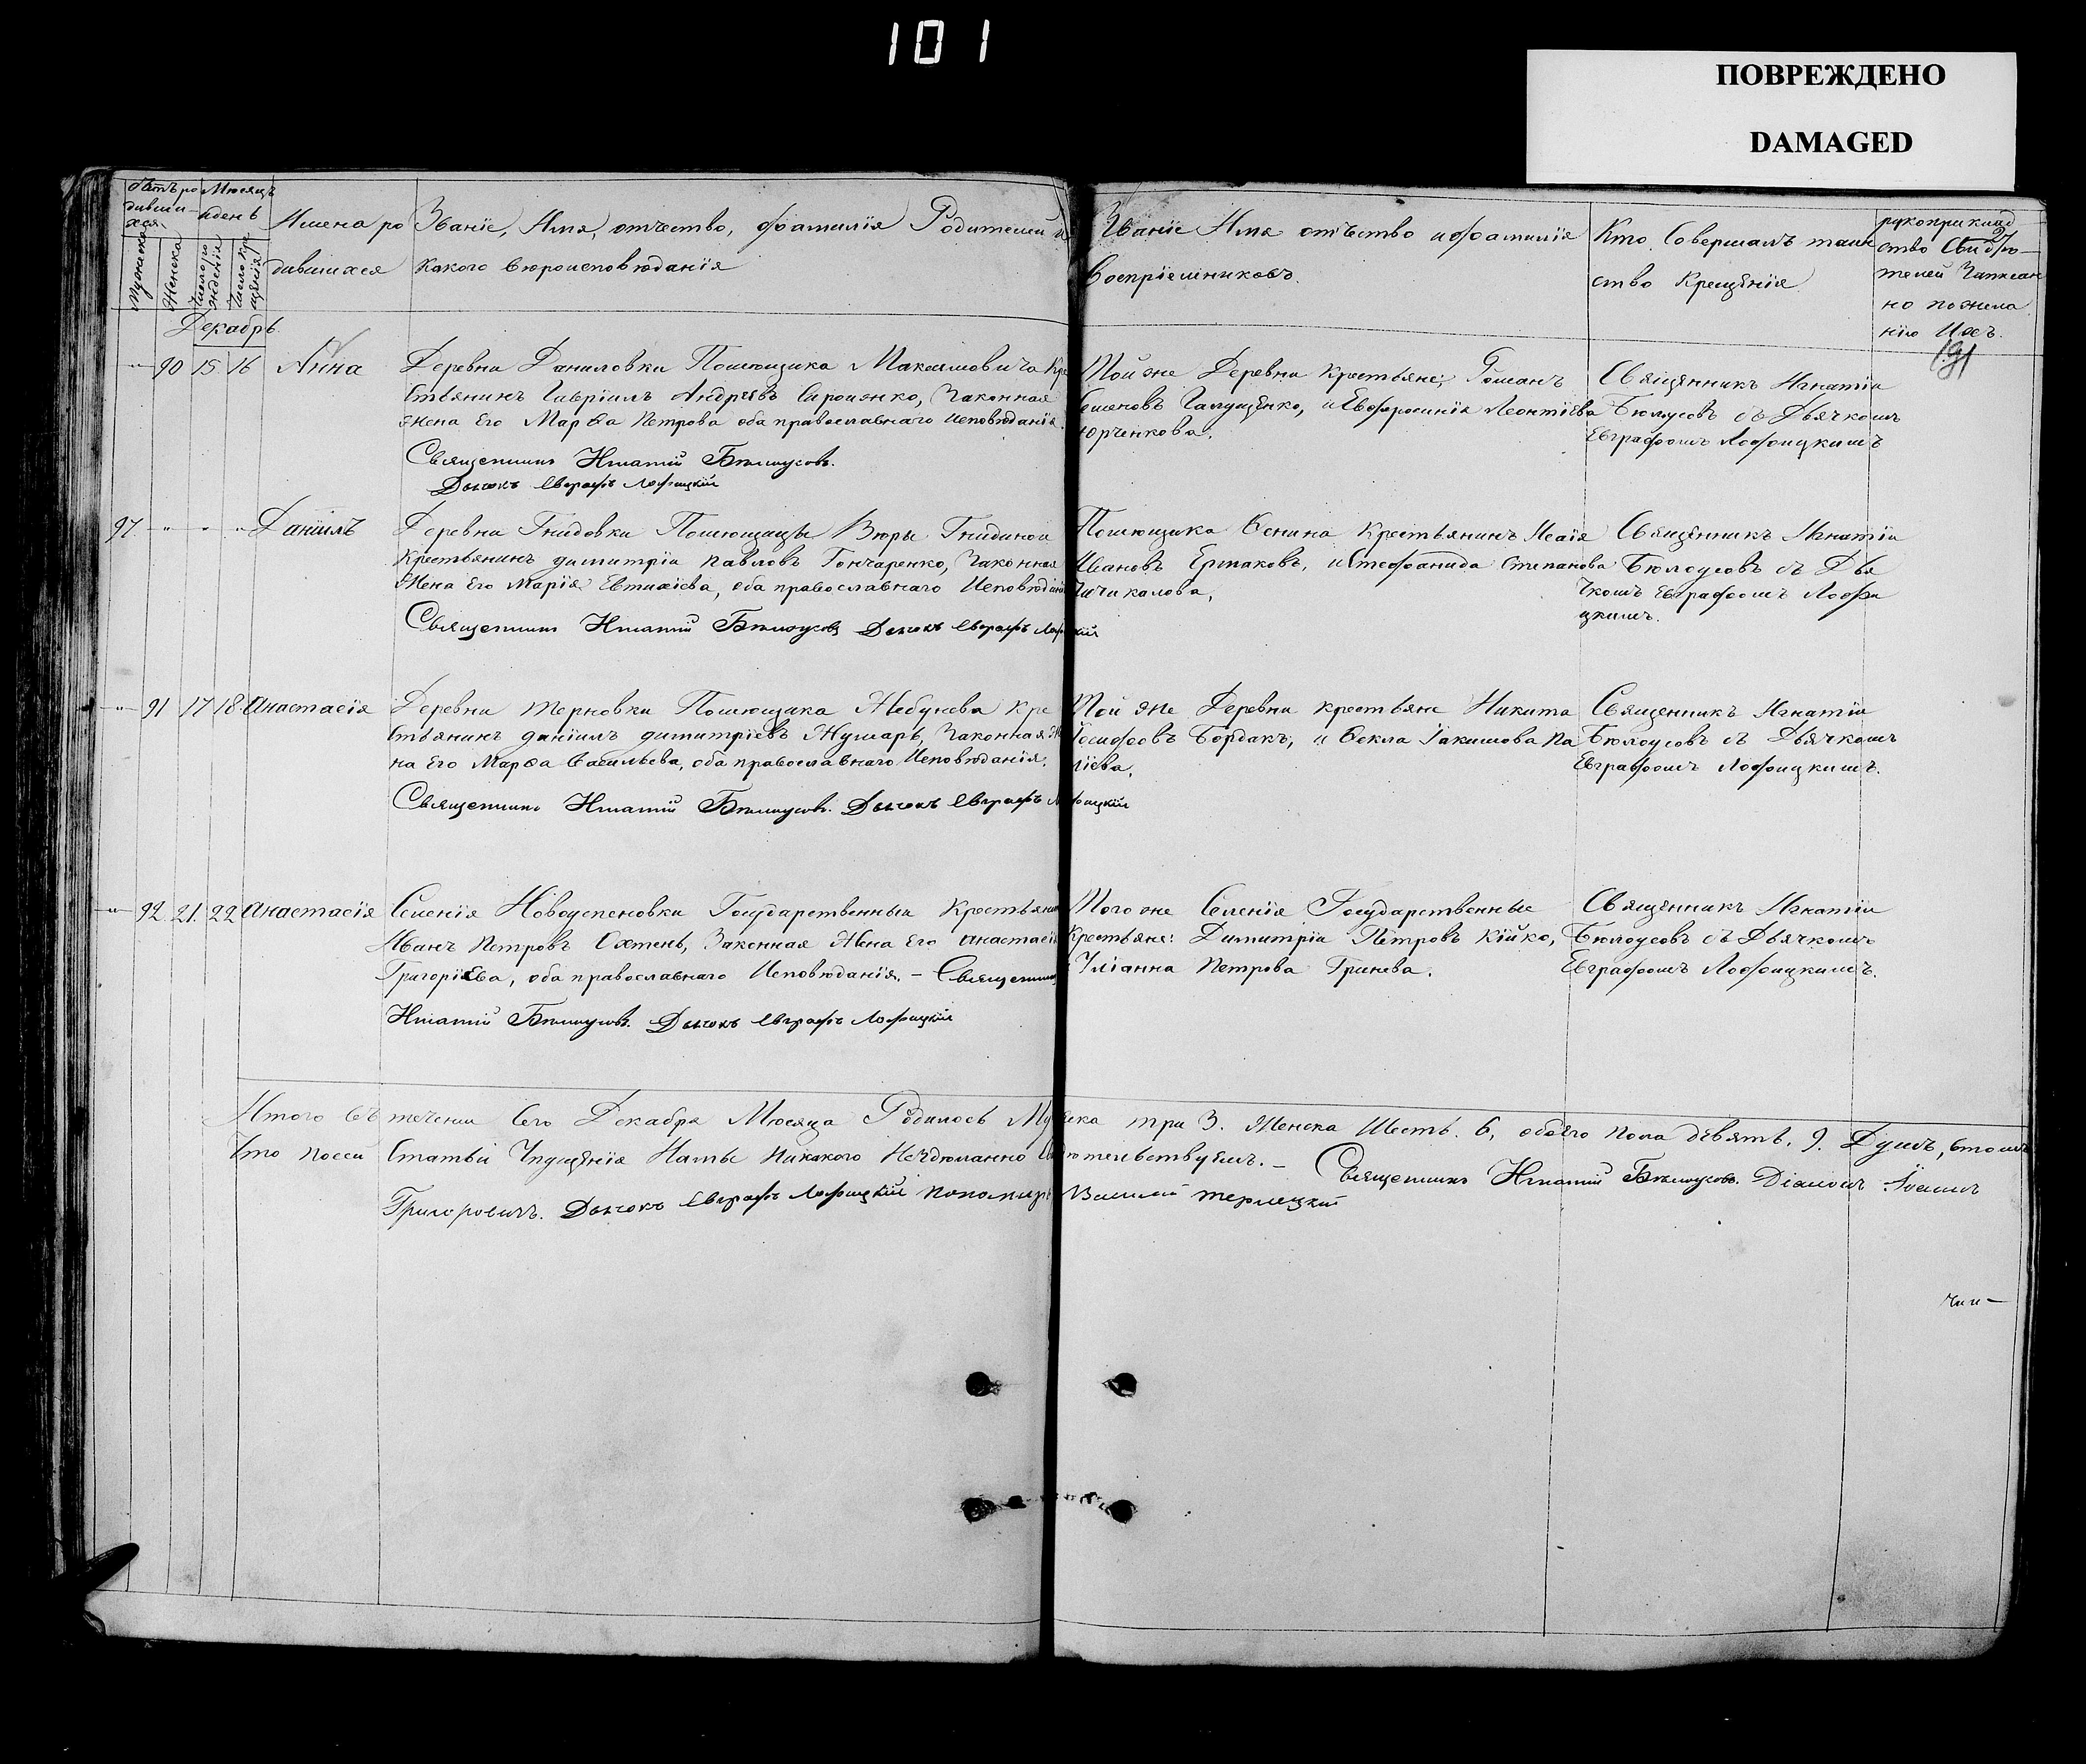 101
ПОВРЕЖДЕНО
DAMAGED
Имена ро
дившихся
Званіе, Имя, отчество, фамилія Родителей и
какого вѣроисповѣданія
Званіе Имя отчество и фамилія
Воспріемниковъ.
Кто Совершалъ таин
ство Крещенія
рукоприклад
ство Свидѣ—
телей Записан
но по жела
нію Ихъ.
191
Мужеска
Женска
Число ро
жденія
Число кре
щенія
Декабрь
90 15 16 Анна
Деревни Даниловки Помѣщика Максимовича Кре
стьянинъ Гавріилъ Андреевъ Сироженко, Законная
жена Его Марѳа Петрова оба православнаго исповѣданія.
Священникъ Игнатій Бѣлоусовъ.
Дьячокъ Евграфъ Лофицкій
Той же Деревни Крестьяне, Романъ
Семеновъ Галущенко, и Евфросинія Леонтіева
Юрченкова.
Священникъ Игнатій
Бѣлоусовъ съ Дьячкомъ
Евграфомъ Лофицкимъ
97 Даніилъ
Деревни Гнидовки Помѣщицы Вѣры Гнидиной
Крестьянинъ димитрій Павловъ Гончаренко, Законная
Жена Его Марія Евтихіева, оба православнаго Исповѣданія
Священникъ Игнатій Бѣлоусовъ Дьячокъ Евграфъ Лофицкій
Помѣщика Сенина Крестьянинъ Исаія
Ивановъ Ермаковъ, и Стефанида Степанова
Чичкалова.
Священникъ Игнатій
Бѣлоусовъ съ Дья
чкомъ Евграфомъ Лофи
цкимъ.
91 17 18 Анастасія
Деревни Терновки Помѣщика Жебунева Кре
стьянинъ даніилъ димитріевъ Жушаръ, Законная Же
на Его Марѳа Васильева, оба православнаго Исповѣданія.
Священникъ Игнатій Бѣлоусовъ. Дьячокъ Евграфъ Лофицкій
Той же Деревни крестьяне Никита
Іосифовъ Бордакъ, и Ѳекла Іакимова Па
ліева.
Священникъ Игнатій
Бѣлоусовъ съ Дьячкомъ
Евграфомъ Лофицкимъ.
92 21 22 Анастасія
Селенія Новоуспеновки Государственный Крестьянинъ
Иванъ Петровъ Охтень, Законная Жена Его Анастасія
Григоріева, оба православнаго Исповѣданія. — Священникъ
Игнатій Бѣлоусовъ. Дьячокъ Евграфъ Лофицкій
Того же Селенія Государственные
Крестьяне: Димитрій Петровъ Кійко,
Уліанна Петрова Гринева.
Священникъ Игнатій
Бѣлоусовъ съ Дьячкомъ
Евграфомъ Лофицкимъ.
Итого въ теченіи Сего Декабря Мѣсяца Родилось Мужеска три 3. Женска Шесть. 6, обоего пола девять. 9. Душъ, въ томъ
Что посей Статьи Упущенія Нами Никакого Несдѣланно Свидѣтельствуемъ. — Священникъ Игнатій Бѣлоусовъ. Діаконъ Іоаннъ
Григоровичъ. Дьячокъ Евграфъ Лофицкій Пономарь Василій Терлецкій